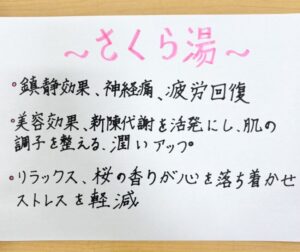 ～さくら湯～
•鎮静効果、神経痛、疲労回復
•美容効果、新陳代謝を活発にし、肌の
調子を整える、潤いアップ
•リラックス、桜の香りが心を落ち着かせ
ストレスを軽減